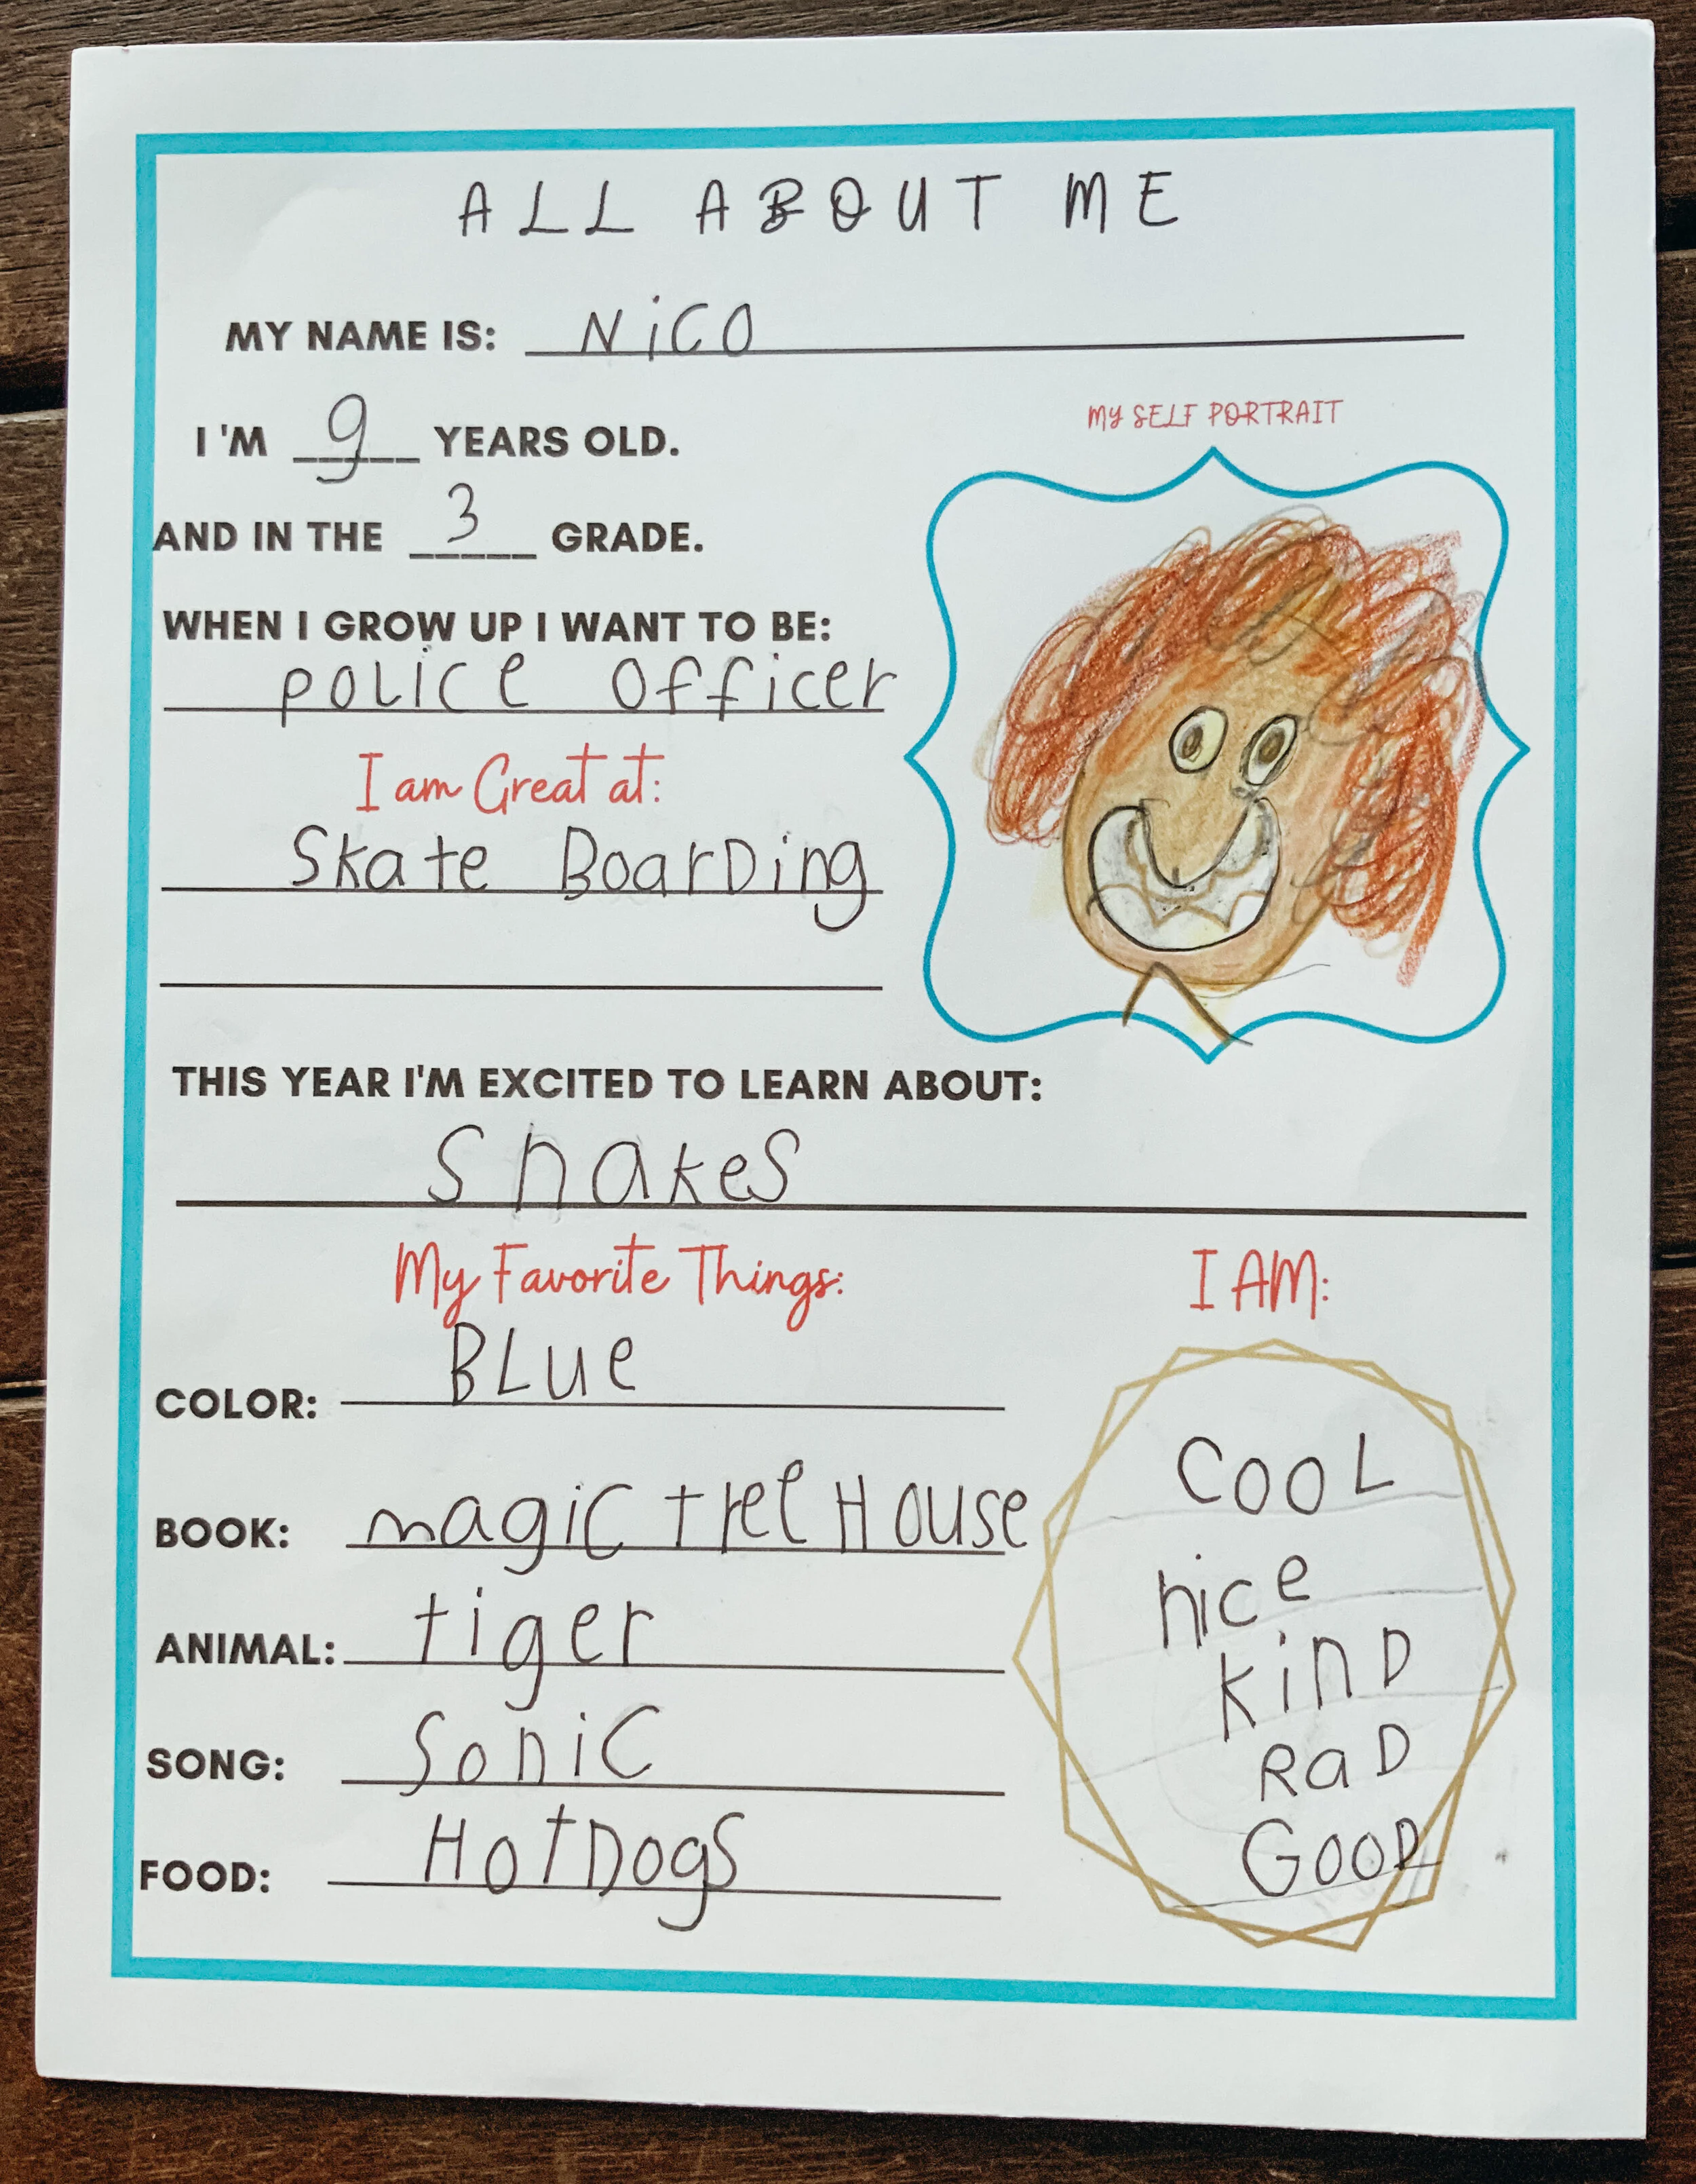 ALL ABOUT ME
MY NAME IS: NiCO
I 'M 9 YEARS OLD.
MY SELF PORTRAIT
AND IN THE 3 GRADE.
WHEN I GROW UP I WANT TO BE:
POLiCe Officer
I am Great at:
Skate BoarDing
THIS YEAR I'M EXCITED TO LEARN ABOUT:
SnakeS
My Favorite Things:
COLOR: BLue
BOOK: magiC tree House
ANIMAL: tiger
SONG: SoniC
FOOD: HotDogS
I AM:
COOL
nice
KinD
RaD
GOOD